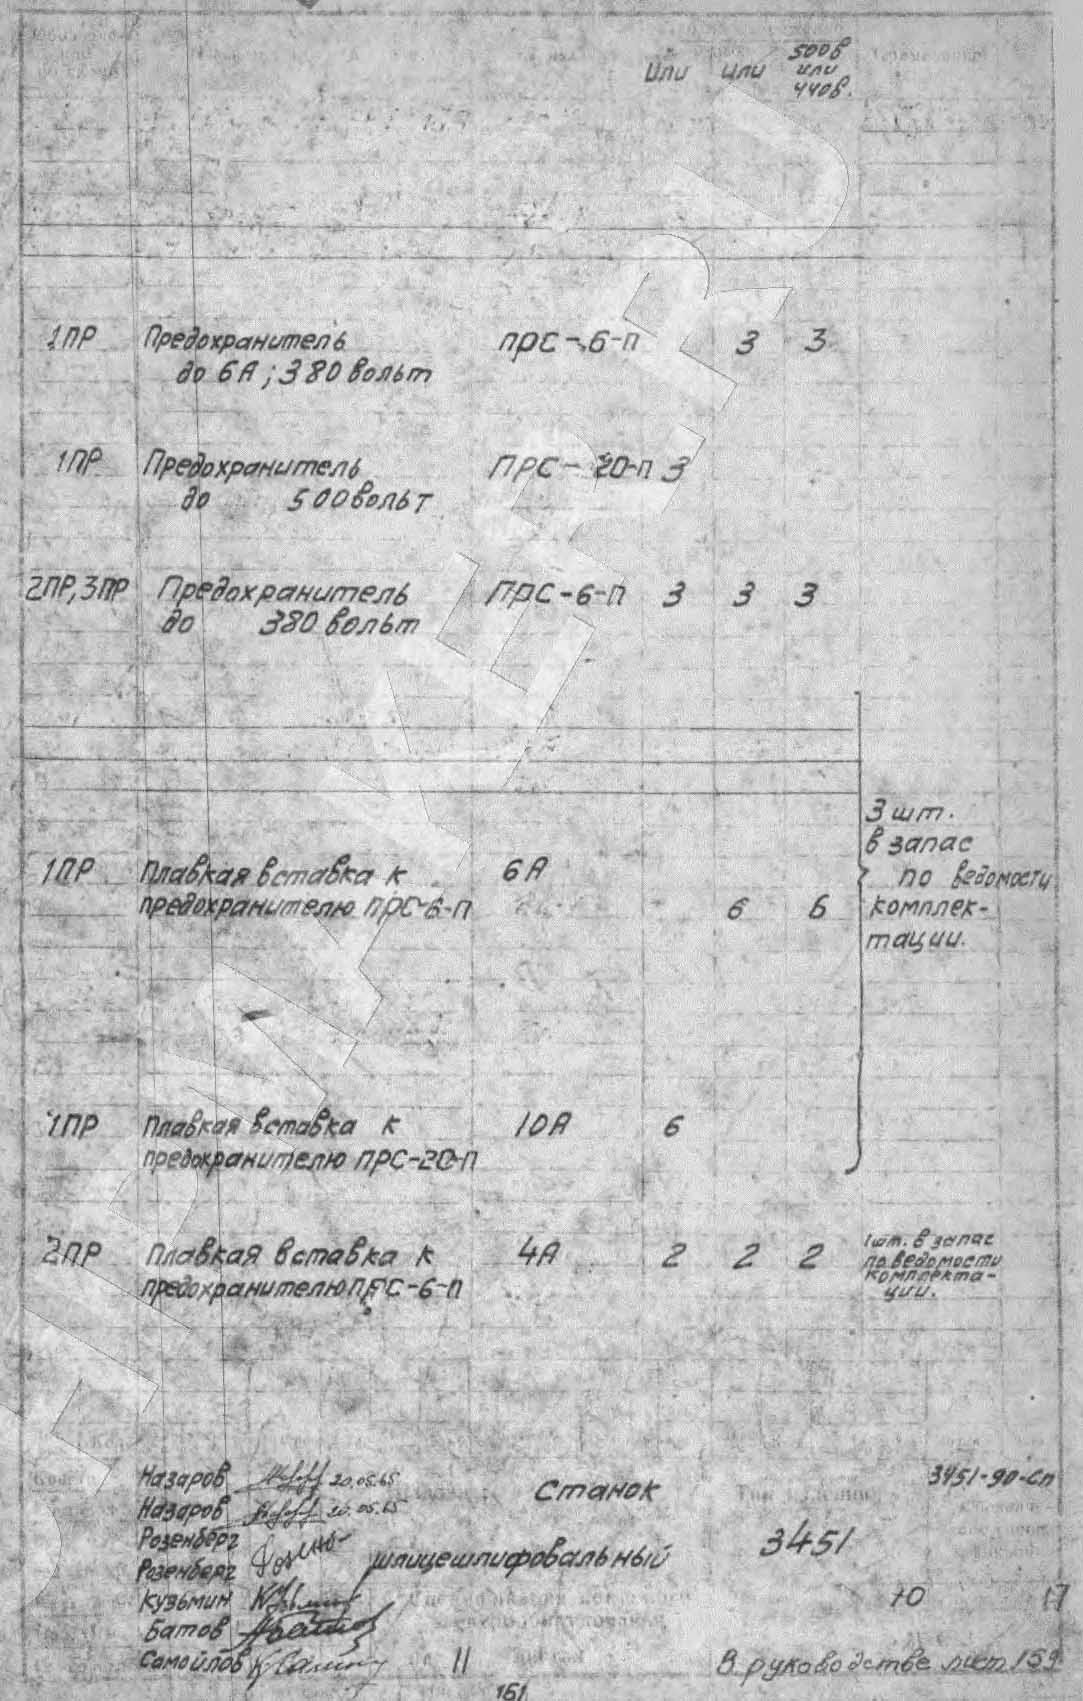 500в
или или или
440в.
1ПР Предохранитель ПРС-6-П 3 3
до 6А; 380 вольт
1ПР Предохранитель ПРС-20-П 3
до 500 вольт
2ПР, 3ПР Предохранитель ПРС-6-П 3 3 3
до 380 вольт
3 шт.
в запас
1ПР Плавкая вставка к 6А по ведомости
предохранителю ПРС-6-П 6 6 комплек-
тации.
1ПР Плавкая вставка к 10А 6
предохранителю ПРС-20-П
2ПР Плавкая вставка к 4А 2 2 2 1 шт. в запас
по ведомости
предохранителю ПРС-6-П комплекта-
ции.
Назаров 20.05.65 Станок 3451-90-Сп
Назаров 20.05.65
Розенберг 3451
Розенберг шлицешлифовальный
Кузьмин 10 17
Батов
Самойлов 11 В руководстве лист 159
161
STANMASTER.RU